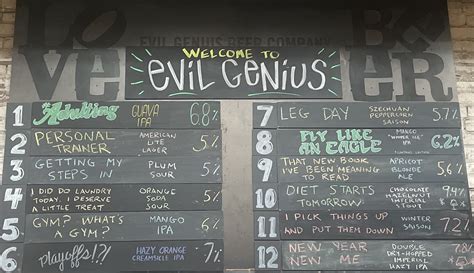 LOVE
BEER
EVIL GENIUS BEER COMPANY
WELCOME TO
EVIL GENIUS
1 #Adulting GUAVA IPA 6.8%
2 PERSONAL TRAINER AMERICAN LITE LAGER 5%
3 GETTING MY STEPS IN PLUM SOUR 5%
4 I DID DO LAUNDRY TODAY, I DESERVE A LITTLE TREAT ORANGE SODA SOUR 5%
5 GYM? WHAT'S A GYM? MANGO IPA 6%
6 Playoffs!?! HAZY ORANGE CREAMSICLE IPA 7%
7 LEG DAY SZECHUAN PEPPERCORN SAISON 5.7%
8 FLY LIKE AN EAGLE MANGO "WATER ICE" IPA 6.2%
9 THAT NEW BOOK I'VE BEEN MEANING TO READ APRICOT BLONDE ALE 5.6%
10 DIET STARTS TOMORROW CHOCOLATE HAZELNUT IMPERIAL STOUT 9.4%
11 I PICK THINGS UP AND PUT THEM DOWN WINTER SAISON 7.2%
12 NEW YEAR NEW ME DOUBLE DRY-HOPPED IMPERIAL HAZY IPA